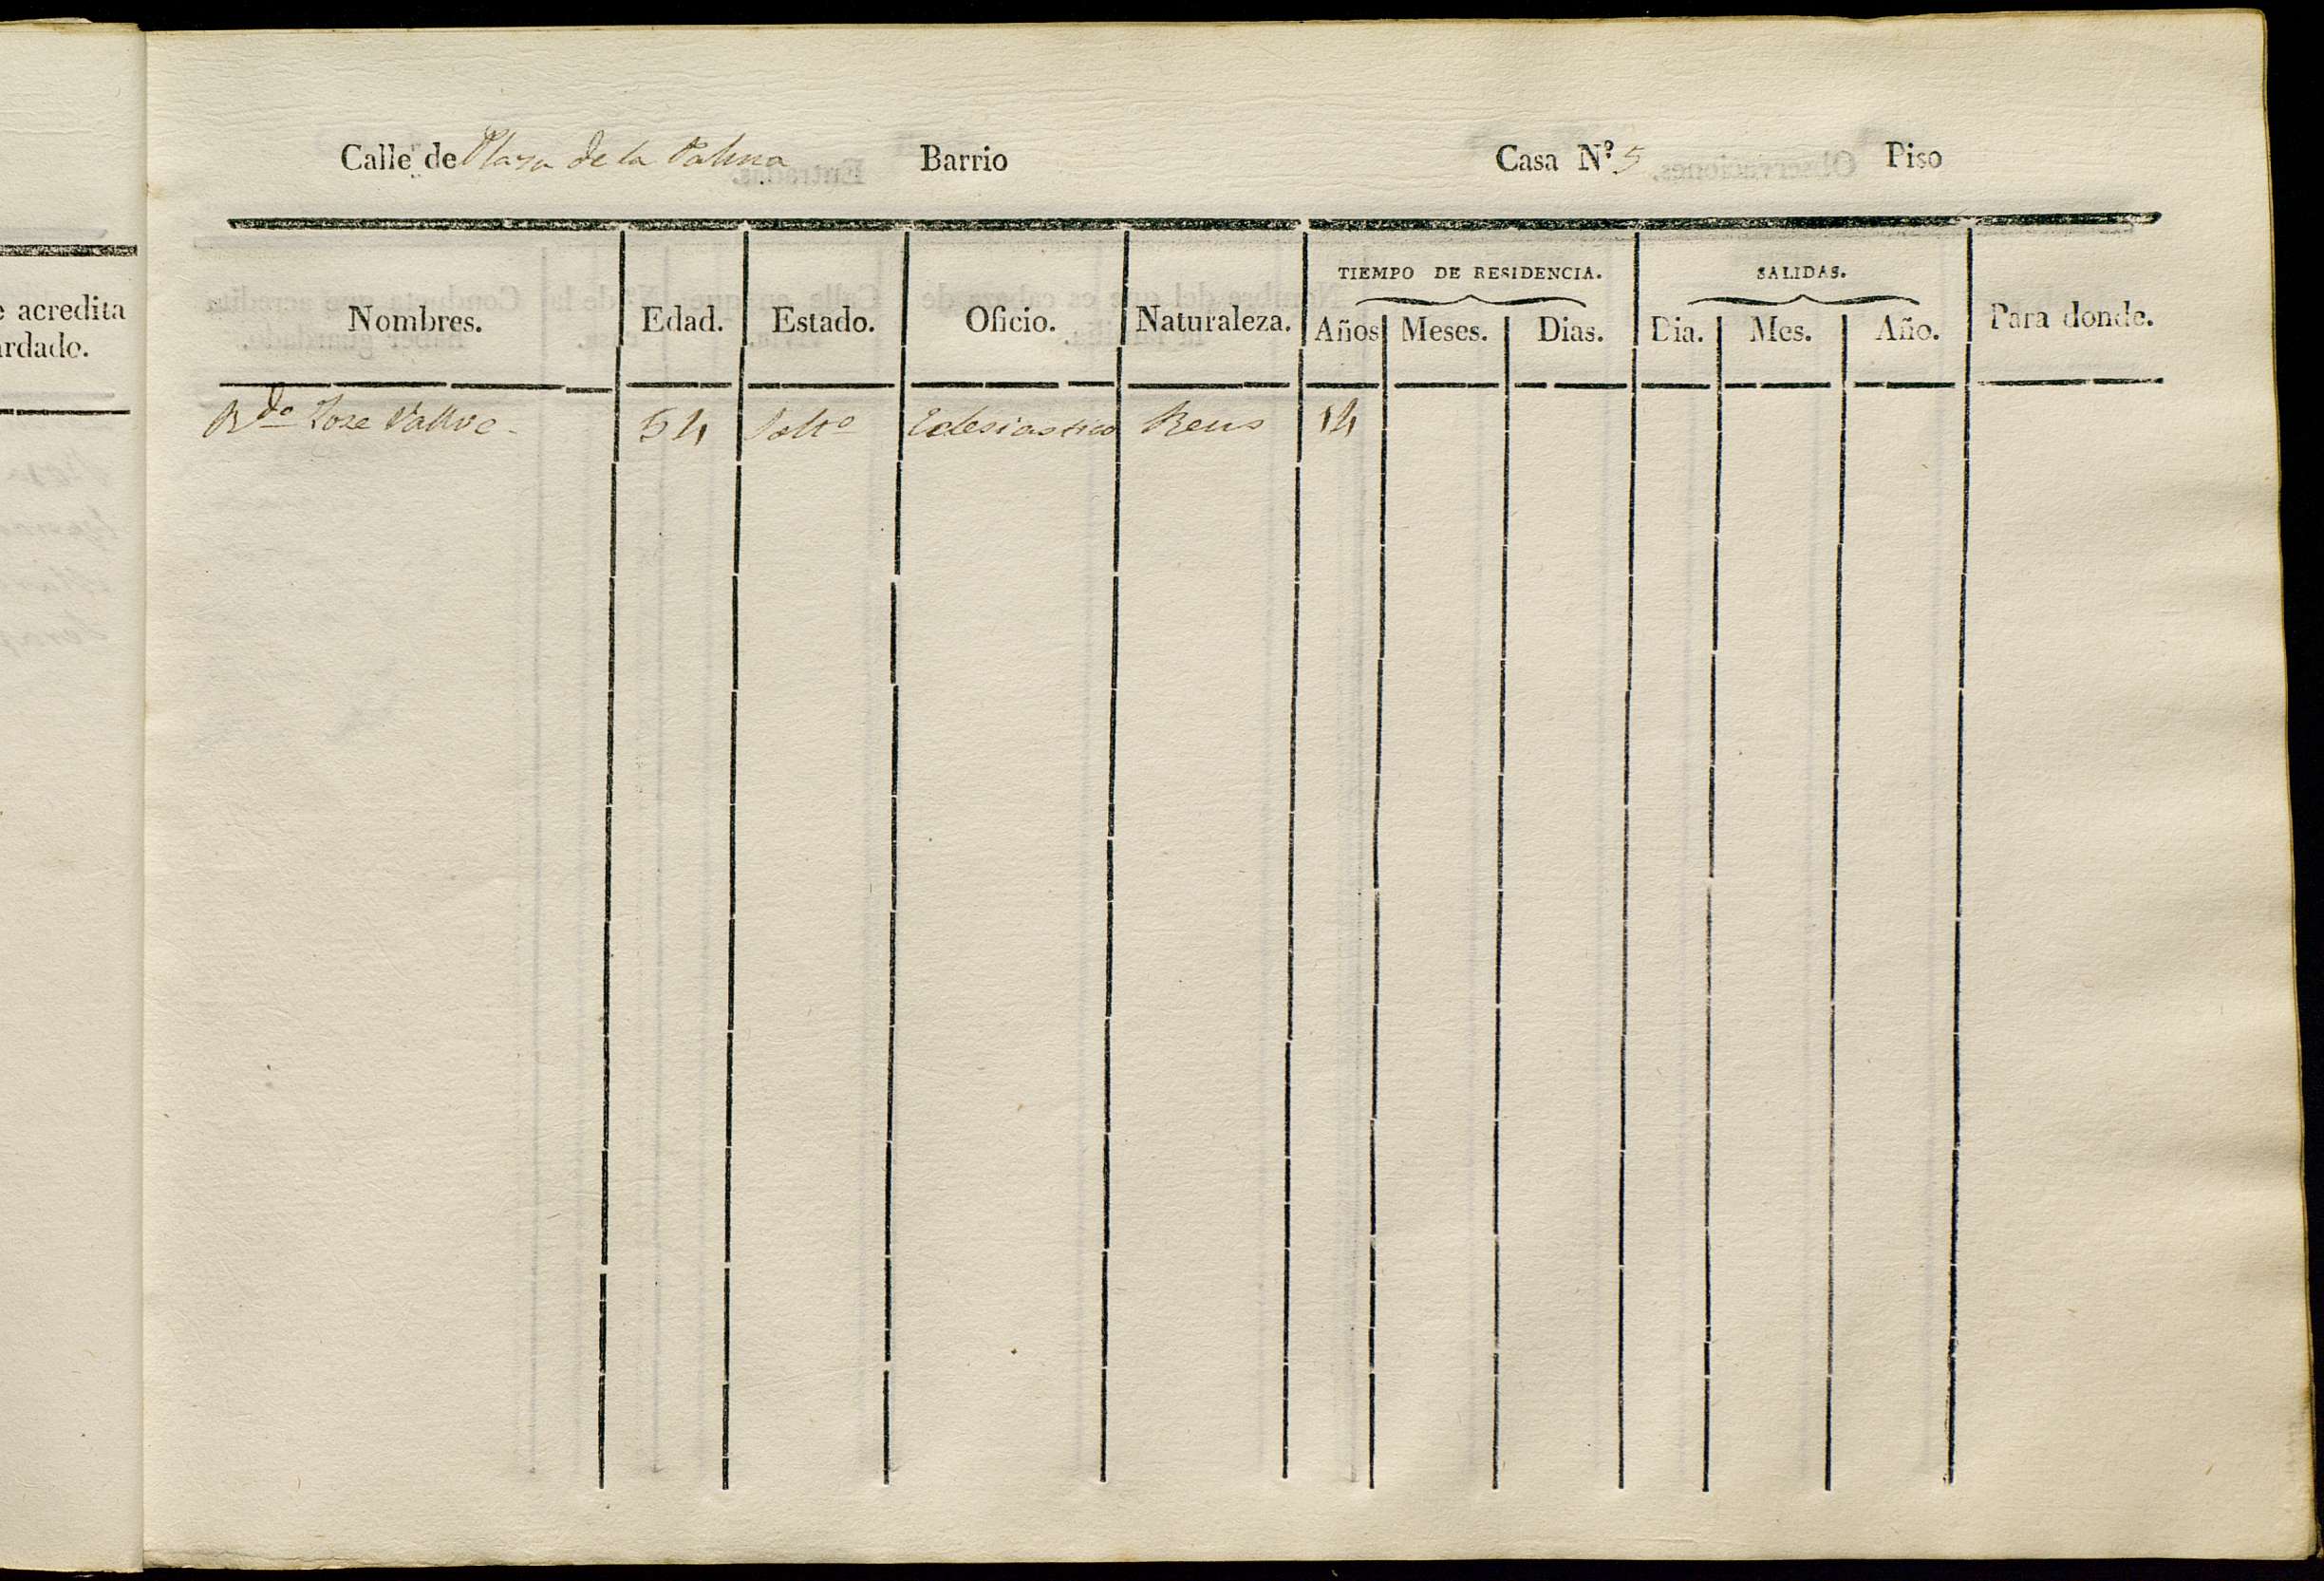 e acredita
ardado.
Calle de Plasa de la Palma Barrio Casa Nº 5 Piso
TIEMPO DE RESIDENCIA. SALIDAS.
Nombres. Edad. Estado. Oficio. Naturaleza. Años Meses. Dias. Dia. Mes. Año. Para donde.
Rdo Jose Vallve 54 Solto Eclesiastico Reus 14